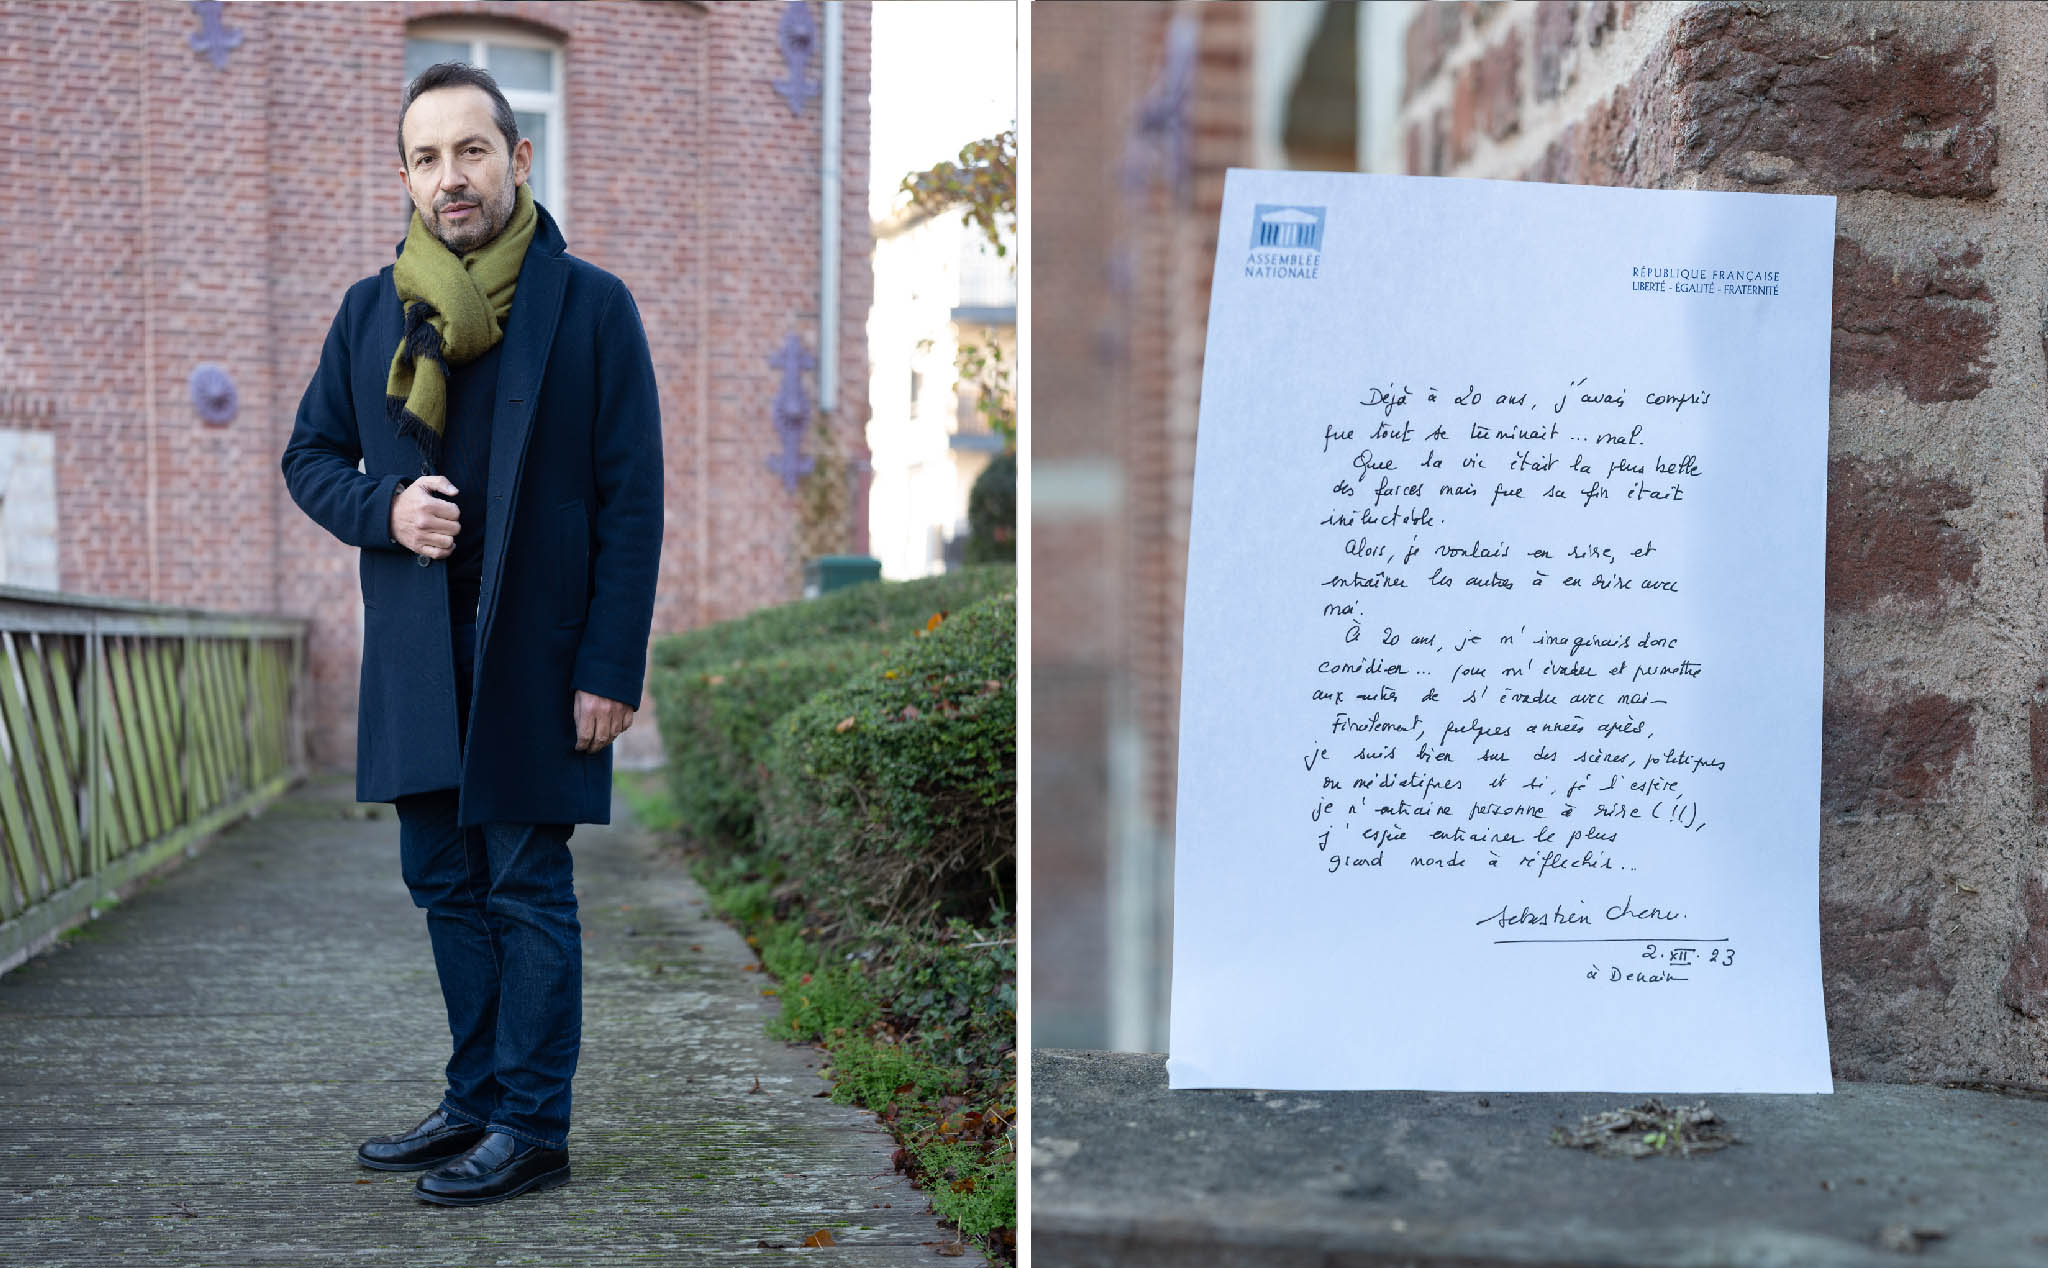 ASSEMBLÉE
NATIONALE
RÉPUBLIQUE FRANÇAISE
LIBERTÉ - ÉGALITÉ - FRATERNITÉ
Déjà à 20 ans, j'avais compris
que tout se terminait ... mal.
Que la vie était la plus belle
des farces mais que sa fin était
inéluctable.
Alors, je voulais en rire, et
entraîner les autres à en rire avec
moi.
À 20 ans, je m'imaginais donc
comédien... pour m'évader et permettre
aux autres de s'évader avec moi -
Finalement, quelques années après,
je suis bien sur des scènes, politiques
ou médiatiques et si, je l'espère,
je n'entraine personne à rire (!!),
j'espère entrainer le plus
grand monde à réfléchir...
Sébastien Chenu.
2. XII. 23
à Denain